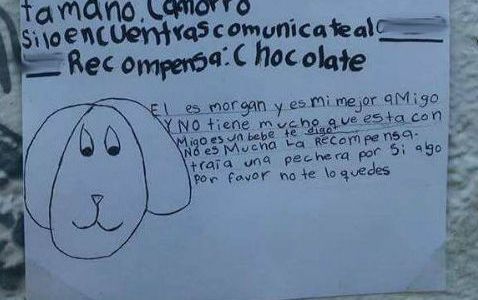 tamaño.Camorro
Si lo encuentras comunicate al
Recompensa: Chocolate
El es morgan y es mi mejor aMigo
Y NO tiene mucho que esta con
Migo es un bebe te digo!
No es Mucha La Recompensa.
traía una pechera por si algo
Por favor no te lo quedes